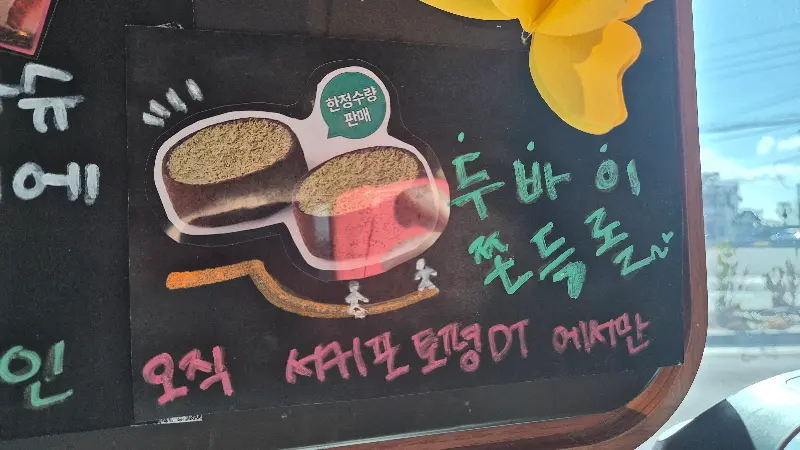 슈
에
인
한정수량
판매
두바이
쫀득롤
오직 서귀포토평DT 에서만